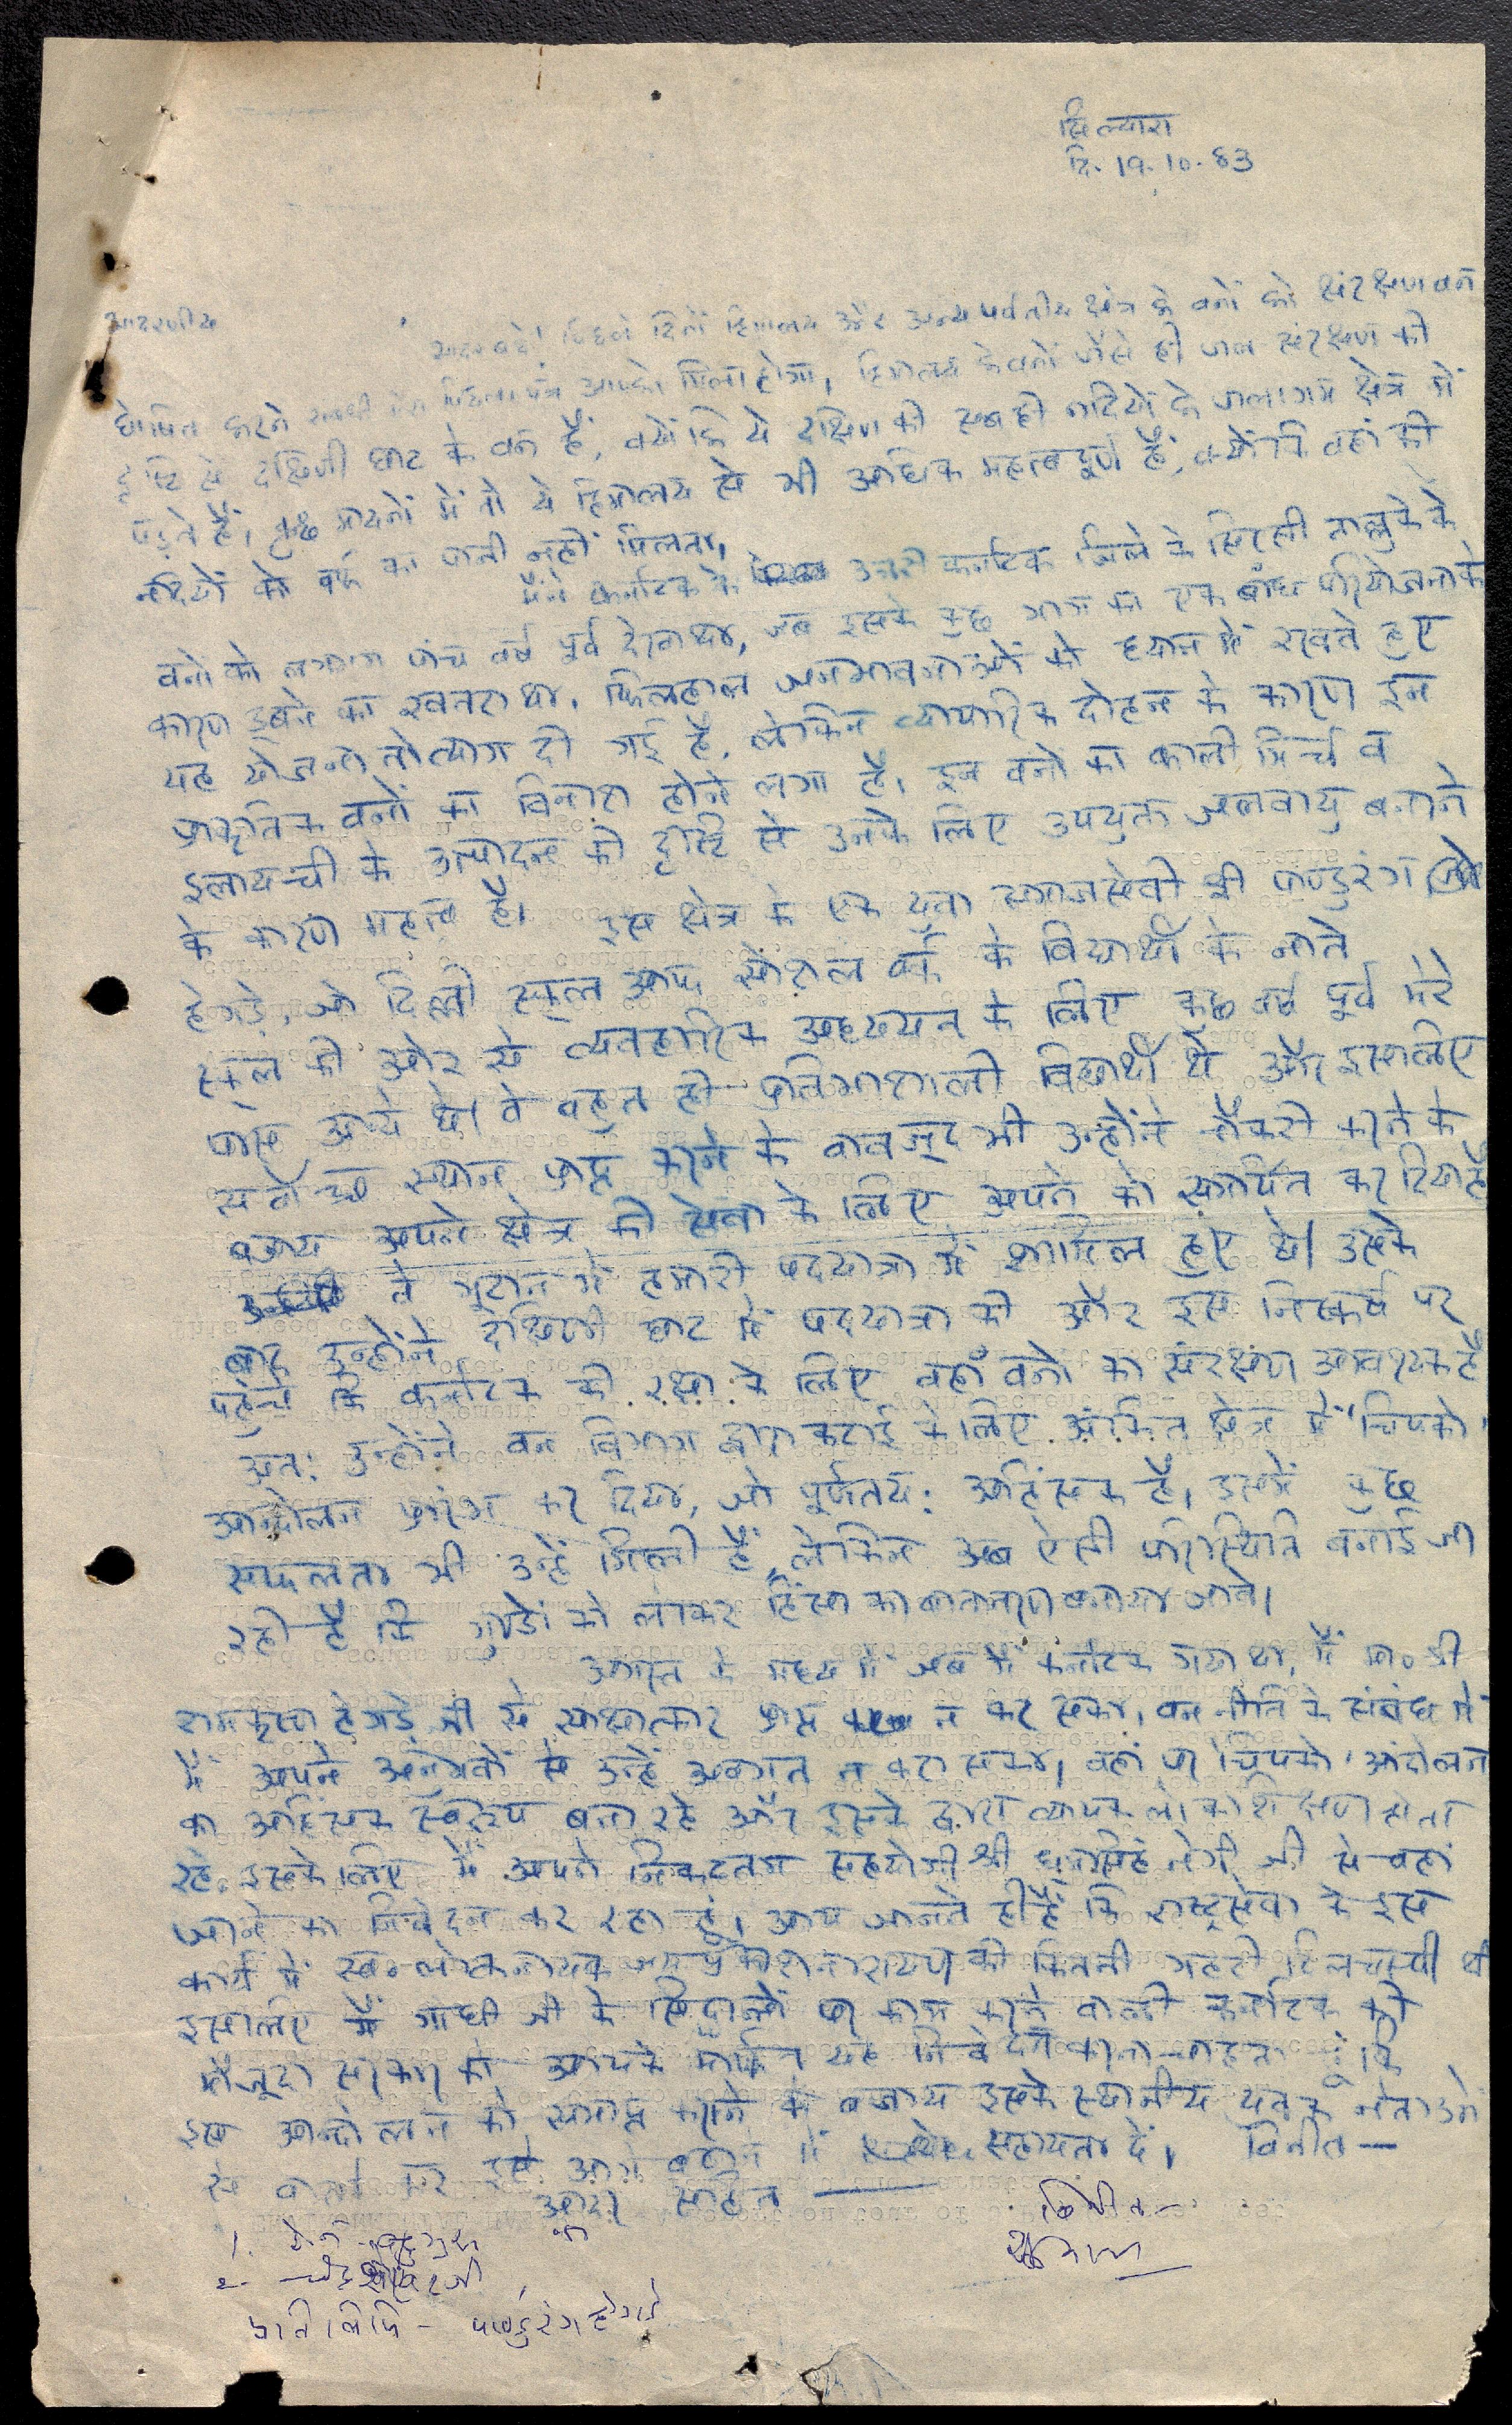 सिल्यारा
दि. 19.10.83
आदरणीय
सादर वन्दे! पिछले दिनों हिमालय और अन्य पर्वतीय क्षेत्र के वनों को संरक्षण वन
घोषित करने सम्बन्धी मेरा पत्र आपको मिला होगा, हिमालय के वनों जैसे ही जल संरक्षण की
दृष्टि से दक्षिणी घाट के वन हैं, क्योंकि ये दक्षिण की सब ही नदियों के जलागम क्षेत्र में
पड़ते हैं, कुछ मायनों में तो ये हिमालय से भी अधिक महत्वपूर्ण हैं, क्योंकि वहां की
नदियों को बर्फ का पानी नहीं मिलता,
मैंने कर्नाटक के उत्तरी कर्नाटक जिले के सिरसी तालुके के
वनों को लगभग पांच वर्ष पूर्व देखा था, जब इसके कुछ भाग का एक बांध परियोजना के
कारण डूबने का खतरा था, फिलहाल जनभावनाओं को ध्यान में रखते हुए
यह योजना तो त्याग दी गई है, लेकिन व्यापारिक दोहन के कारण इन
प्राकृतिक वनों का विनाश होने लगा है, इन वनों का काली मिर्च व
इलायची के उत्पादन की दृष्टि से उनके लिए उपयुक्त जलवायु बनाने
के कारण महत्व है। इस क्षेत्र के एक युवा समाजसेवी श्री पाण्डुरंग
हेगड़े, जो दिल्ली स्कूल आफ सोशल वर्क के विद्यार्थी के नाते
स्कूल की ओर से व्यवहारिक अध्ययन के लिए कुछ वर्ष पूर्व मेरे
पास आये थे। वे बहुत ही प्रतिभाशाली विद्यार्थी थे और इसलिए
सर्वोच्च स्थान प्राप्त करने के बावजूद भी उन्होंने नौकरी करने के
बजाय अपने क्षेत्र की सेवा के लिए अपने को समर्पित कर दिया है
वे भूटान में हमारी पदयात्रा में शामिल हुए थे। उसके
बाद उन्होंने दक्षिणी घाट में पदयात्रा की और इस निष्कर्ष पर
पहुंचे कि कर्नाटक की रक्षा के लिए वहाँ वनों का संरक्षण आवश्यक है
अत: उन्होंने वन विभाग द्वारा कटाई के लिए अंकित क्षेत्र में "चिपको"
आन्दोलन प्रारंभ कर दिया, जो पूर्णतय: अहिंसक है, इसमें कुछ
सफलता भी उन्हें मिली है, लेकिन अब ऐसी परिस्थिति बनाई जा
रही है कि गुण्डों को लाकर हिंसा का वातावरण बनाया जावे।
अगस्त के मध्य में जब मैं कर्नाटक गया था, मैं मा० श्री
रामकृष्ण हेगड़े जी से साक्षात्कार प्राप्त न कर सका, वन नीति के संबंध में
मैं अपने अनुभवों से उन्हें अवगत न करा सका, वहां पर चिपको आंदोलन
का अहिंसक स्वरूप बना रहे और इसके द्वारा व्यापक लोकशिक्षण होता
रहे. इसके लिए मैं अपने निकटतम सहयोगी श्री धूमसिंह नेगी जी से वहां
जाने का निवेदन कर रहा हूं, आप जानते ही हैं कि राष्ट्रसेवा के इस
कार्य में स्व० लोकनायक जयप्रकाश नारायण की कितनी गहरी दिलचस्पी थी
इसलिए मैं गांधी जी के सिद्धान्तों पर काम करने वाली कर्नाटक की
मौजूदा सरकार को आपके मार्फत यह निवेदन करना चाहता हूं कि
इस आन्दोलन को समाप्त करने के बजाय इसके स्थानीय युवक नेताओं
से वार्ता कर इसे आगे बढ़ाने में सहायता दें, विनीत —
आदर सहित —
विनीत -
1. बहुगुणा
2- चंद्रशेखर जी
प्रतिलिपि - पाण्डुरंग हेगड़े